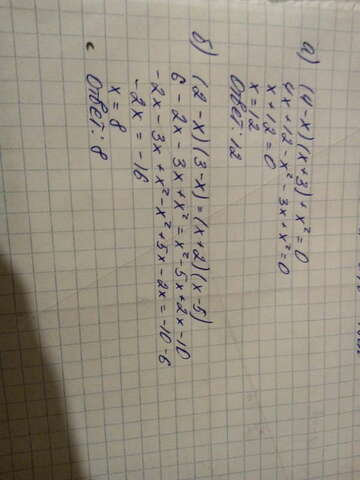 а) (4-x)(x+3)+x²=0
4x+12-x²-3x+x²=0
x+12=0
x=12
Ответ: 12
б) (2-x)(3-x)=(x+2)(x-5)
6-2x-3x+x²=x²-5x+2x-10
-2x-3x+x²-x²+5x-2x=-10-6
-2x=-16
x=8
Ответ: 8